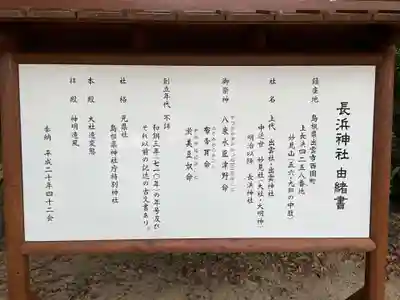 長浜神社 由緒書
鎮座地 島根県出雲市西園町
上長浜四二五八番地
妙見山(五六・九四の中腹)
社名 上代 出雲社・出雲神社
中近世 妙見社(大社・大明神)
明治以降 長浜神社
御祭神 八束水臣津野命
布帝耳命
淤美豆奴命
創立年代 不詳
和銅三年(七一〇年)の年号及び
それ以前の記述の古文書あり。
社格 元県社
島根県神社庁特別神社
本殿 大社造変態
拝殿 神明造風
奉納 平成二十年四十二会